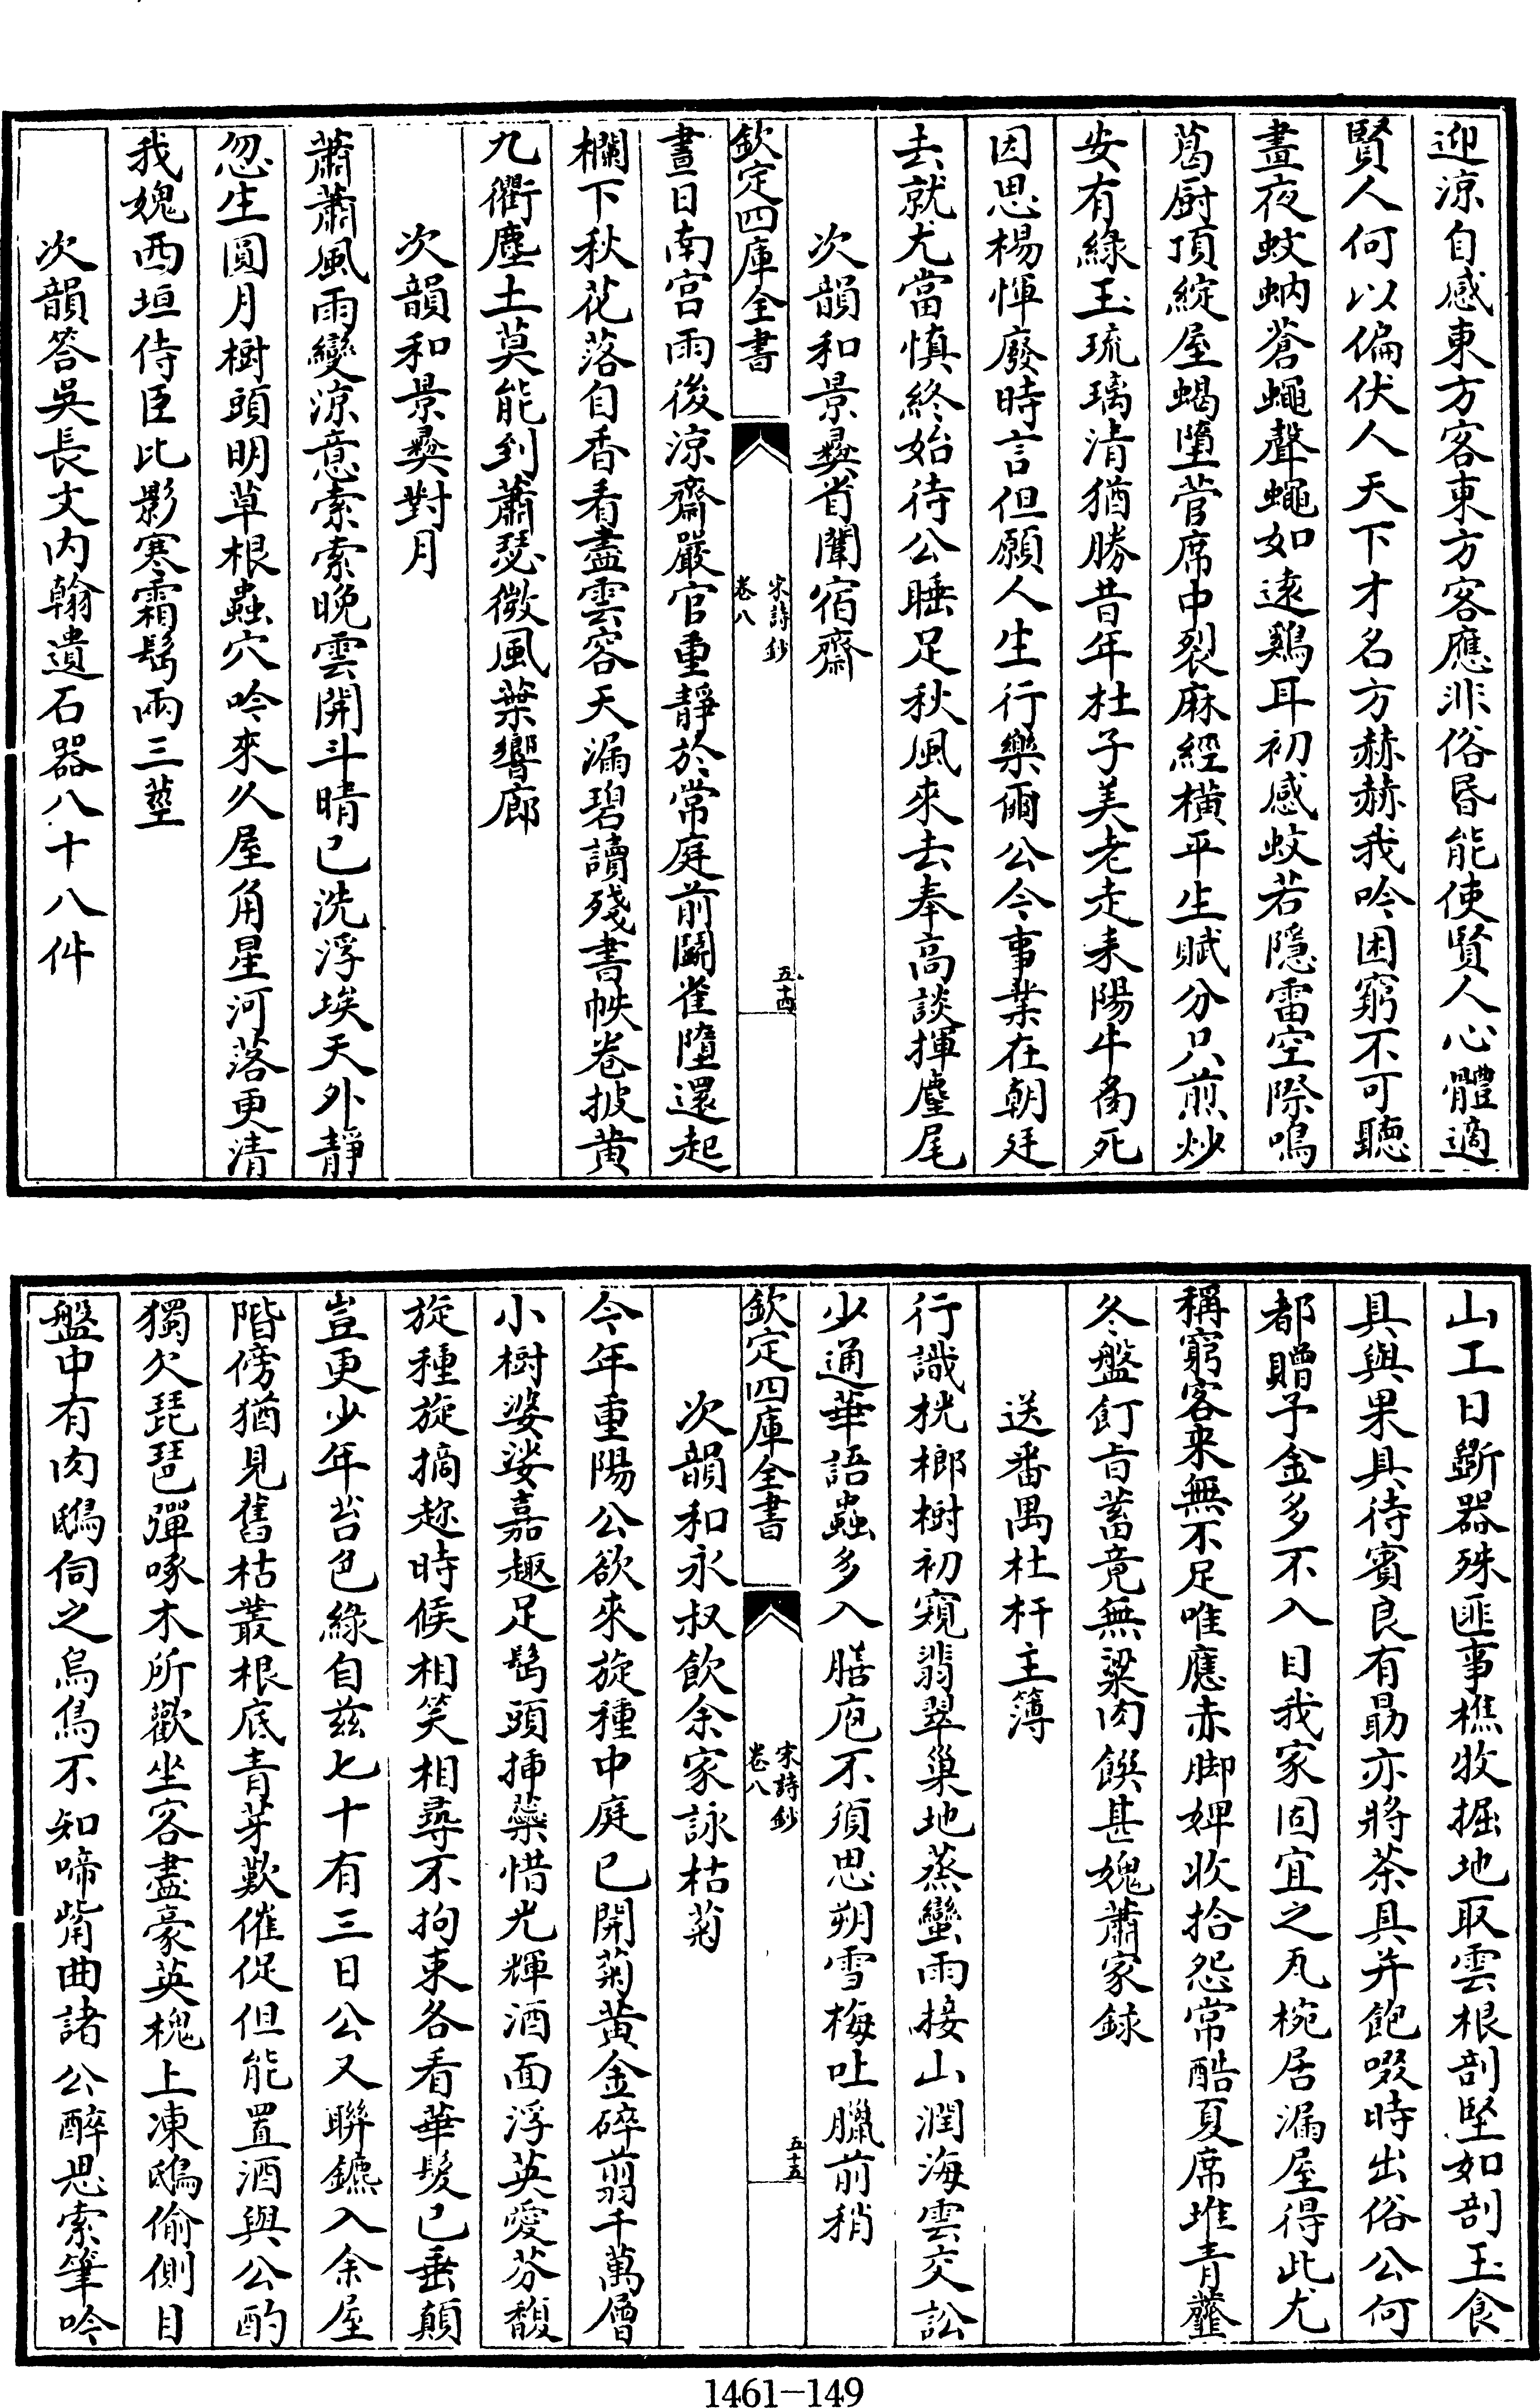 迎涼自感東方客東方客應非俗昏能使賢人心體適
賢人何以偏伏人天下才名方赫赫我吟困窮不可聽
晝夜蚊蚋蒼蠅聲蠅如遠鷄耳初感蚊若隱雷空際鳴
葛厨頂綻屋蝎墮菅席中裂麻經橫平生賦分只煎炒
安有綠玉琉璃清猶勝昔年杜子美老走耒陽牛炙死
因思楊惲廢時言但願人生行樂爾公今事業在朝廷
去就尤當慎終始待公睡足秋風來去奉高談揮麈尾
次韻和景彞省闈宿齋
欽定四庫全書
宋詩鈔
卷八
五十四
晝日南宮雨後涼齋嚴官重靜於常庭前鬭雀墮還起
欄下秋花落自香看盡雲容天漏碧讀殘書帙卷披黃
九衢塵土莫能到蕭瑟微風葉響廊
次韻和景彞對月
蕭蕭風雨變涼意索索晚雲開斗晴已洗浮埃天外靜
忽生圓月樹頭明草根蟲穴吟來久屋角星河落更清
我媿西垣侍臣比影寒霜髩兩三莖
次韻答吳長文內翰遺石器八十八件
山工日斲器殊匪事樵牧掘地取雲根剖堅如剖玉食
具與果具待賓良有勗亦將茶具并飽啜時出俗公何
都贈予金多不入目我家固宜之瓦椀居漏屋得此尤
稱窮客來無不足唯應赤脚婢收拾怨常酷夏席堆青虀
冬盤飣旨蓄竟無粱肉饌甚媿蕭家録
送番禺杜杆主簿
行識桄榔樹初窺翡翠巢地蒸蠻雨接山潤海雲交訟
少通華語蟲多入膳庖不須思朔雪梅吐臘前稍
欽定四庫全書
宋詩鈔
卷八
五十五
次韻和永叔飲余家詠枯菊
今年重陽公欲來旋種中庭已開菊黃金碎翦千萬層
小樹婆娑嘉趣足髩頭揷蘂惜光輝酒面浮英愛芬馥
旋種旋摘趂時候相笑相尋不拘束各看華髮已垂顛
豈更少年苔色綠自兹七十有三日公又聯鑣入余屋
階傍猶見舊枯叢根底青芽歎催促但能置酒與公酌
獨欠琵琶彈啄木所歡坐客盡豪英槐上凍鴟偷側目
盤中有肉鴟伺之烏鳥不知啼觜曲諸公醉思索筆吟
1461-149